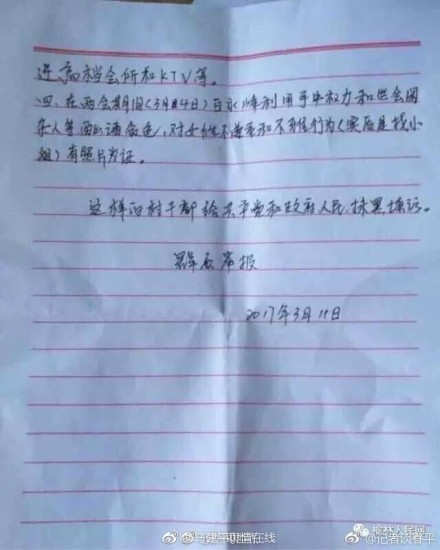 进高档会所和KTV等。
四、在两会期间(3月4日)百永峰利用手中权力和社会闲
杂人等 对女性不尊重和不雅行为(实际是找小
姐)有照片为证。
这样的村干部给共产党和政府人民抹黑
群众举报
2017年3月11日
榆林人民网
@记者谈春平